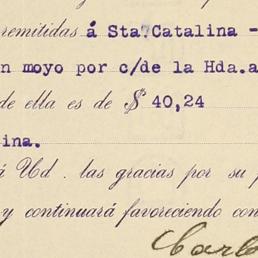 remitidas á Sta. Catalina -
n moyo por c/de la Hda.a
de ella es de $ 40,24
ina.
á Ud. las gracias por su p
y continuará favoreciendo con
Carl